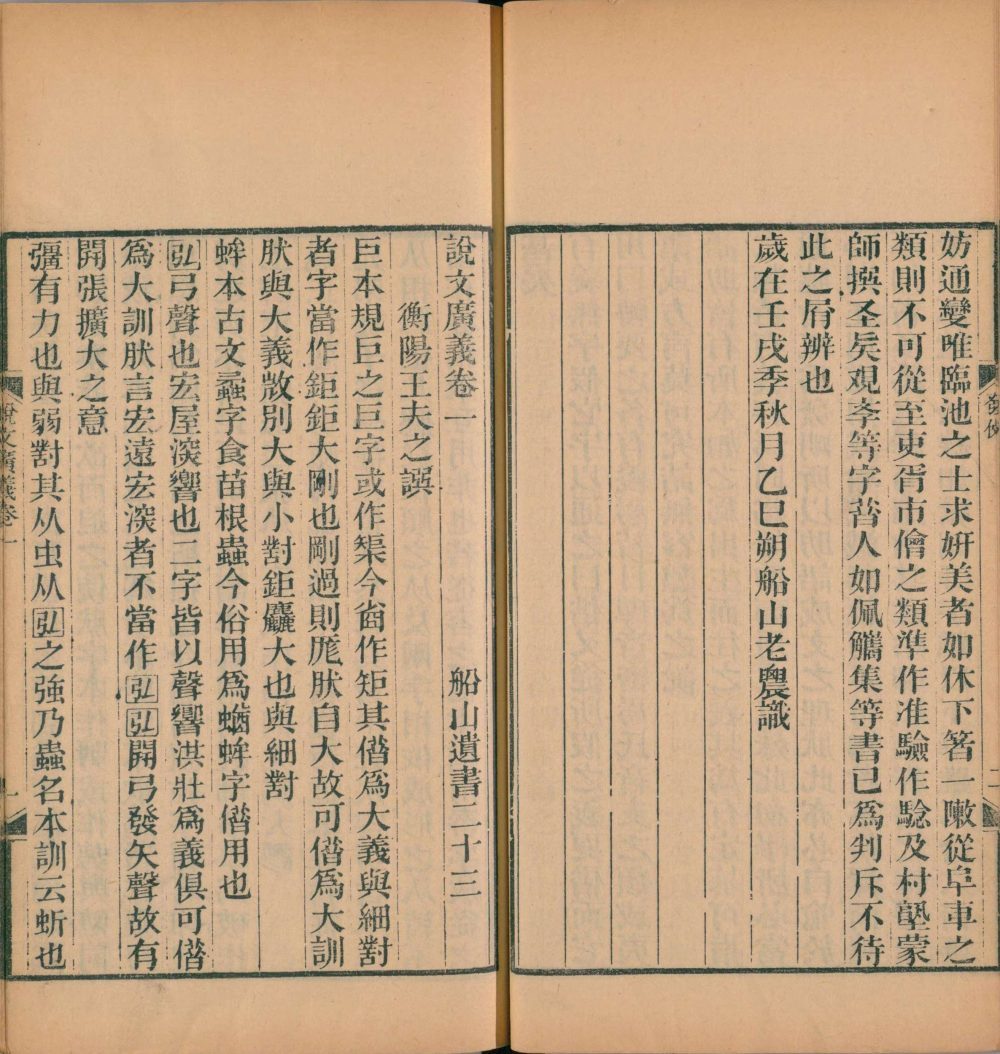 妨通變唯臨池之士求妍美者如休下箸一敶從阜車之
類則不可從至吏胥市儈之類準作准驗作騐及村塾蒙
師撰圣矣观李等字昔人如佩觿集等書已為判斥不待
此之屑辨也
歲在壬戌季秋月乙巳朔船山老農識
發例
二
說文廣義卷一
船山遺書二十三
衡陽王夫之譔
巨本規巨之巨字或作榘今俗作矩其借爲大義與細對
者字當作鉅鉅大剛也剛過則尨肰自大故可借爲大訓
肰與大義㪚別大與小對鉅麤大也與細對
蛑本古文蟊字食苗根蟲今俗用爲蝤蛑字借用也
弘弓聲也宏屋深響也二字皆以聲響洪壯爲義俱可借
爲大訓肰言宏遠宏深者不當作弘弘開弓發矢聲故有
開張擴大之意
彊有力也與弱對其从虫从弘之強乃蟲名本訓云蚚也
說文廣義卷一
一